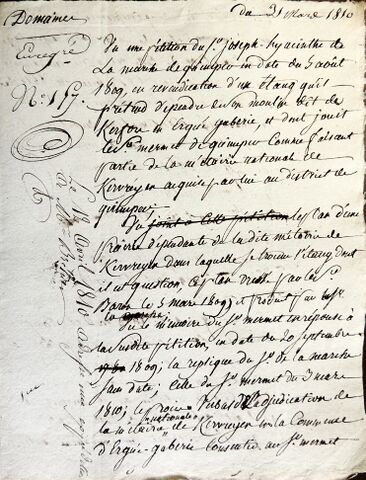 Domaines
du 31 Mars 1810
Enregré
N.° 157.
Vu une pétition du Sr. joseph-hyacinthe de
La marche de quimper en date du 5 aout
1809, en revendication d'un Etang qu'il
prétend dépendre de son moulin dit de
Kerfors en Ergué gaberic, et dont jouit
le Sr. mermet de quimper comme faisant
partie de la métairie nationale de
Kervreyen acquise par lui au district de
quimper;
Vu joint à cette pétition le plan d'une
prairie dépendante de la dite métairie de
Kervreyen dans laquelle se trouve l'étang dont
il est question, par le Sr.
Baron le 3 mars 1809 et produit par le Sr.
la marche
Vu le mémoire du Sr. mermet en réponse à
la Susdite pétition, en date du 20 Septembre
1809; la replique du Sr. de la marche
sans date; Celle du Sr. mermet du 3 mars
1810; le procès Verbal d'adjudication de
la métairie nationale de Kervreyen en la Commune
d'Ergué-gaberic consentie au Sr. mermet
avril 1810